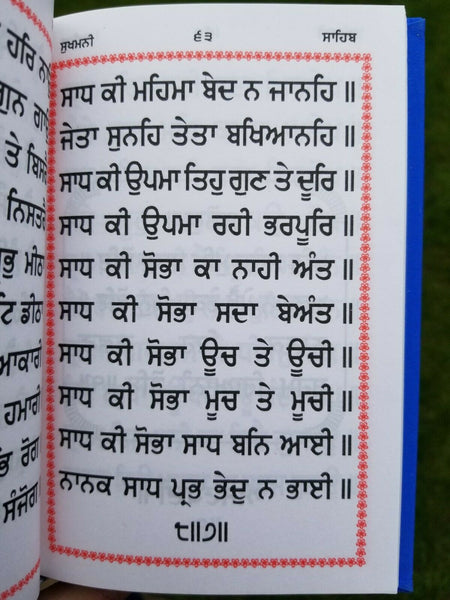 ਹਰਿ
ਗੁਨ ਗਾ
ਤੇ ਬਿਸ
ਨਿਸਤ
ਪ੍ਰਭੁ ਮੀਠਾ
ਡੀਠਾ
ਆਕਾਰੀ
ਹਮਾਰੀ
ਰੋਗ
ਸੰਜੋਗ
ਸੁਖਮਨੀ ੬੩ ਸਾਹਿਬ
ਸਾਧ ਕੀ ਮਹਿਮਾ ਬੇਦ ਨ ਜਾਨਹਿ ॥
ਜੇਤਾ ਸੁਨਹਿ ਤੇਤਾ ਬਖਿਆਨਹਿ ॥
ਸਾਧ ਕੀ ਉਪਮਾ ਤਿਹੁ ਗੁਣ ਤੇ ਦੂਰਿ ॥
ਸਾਧ ਕੀ ਉਪਮਾ ਰਹੀ ਭਰਪੂਰਿ ॥
ਸਾਧ ਕੀ ਸੋਭਾ ਕਾ ਨਾਹੀ ਅੰਤ ॥
ਸਾਧ ਕੀ ਸੋਭਾ ਸਦਾ ਬੇਅੰਤ ॥
ਸਾਧ ਕੀ ਸੋਭਾ ਊਚ ਤੇ ਊਚੀ ॥
ਸਾਧ ਕੀ ਸੋਭਾ ਮੂਚ ਤੇ ਮੂਚੀ ॥
ਸਾਧ ਕੀ ਸੋਭਾ ਸਾਧ ਬਨਿ ਆਈ ॥
ਨਾਨਕ ਸਾਧ ਪ੍ਰਭ ਭੇਦੁ ਨ ਭਾਈ ॥
੮॥੭॥